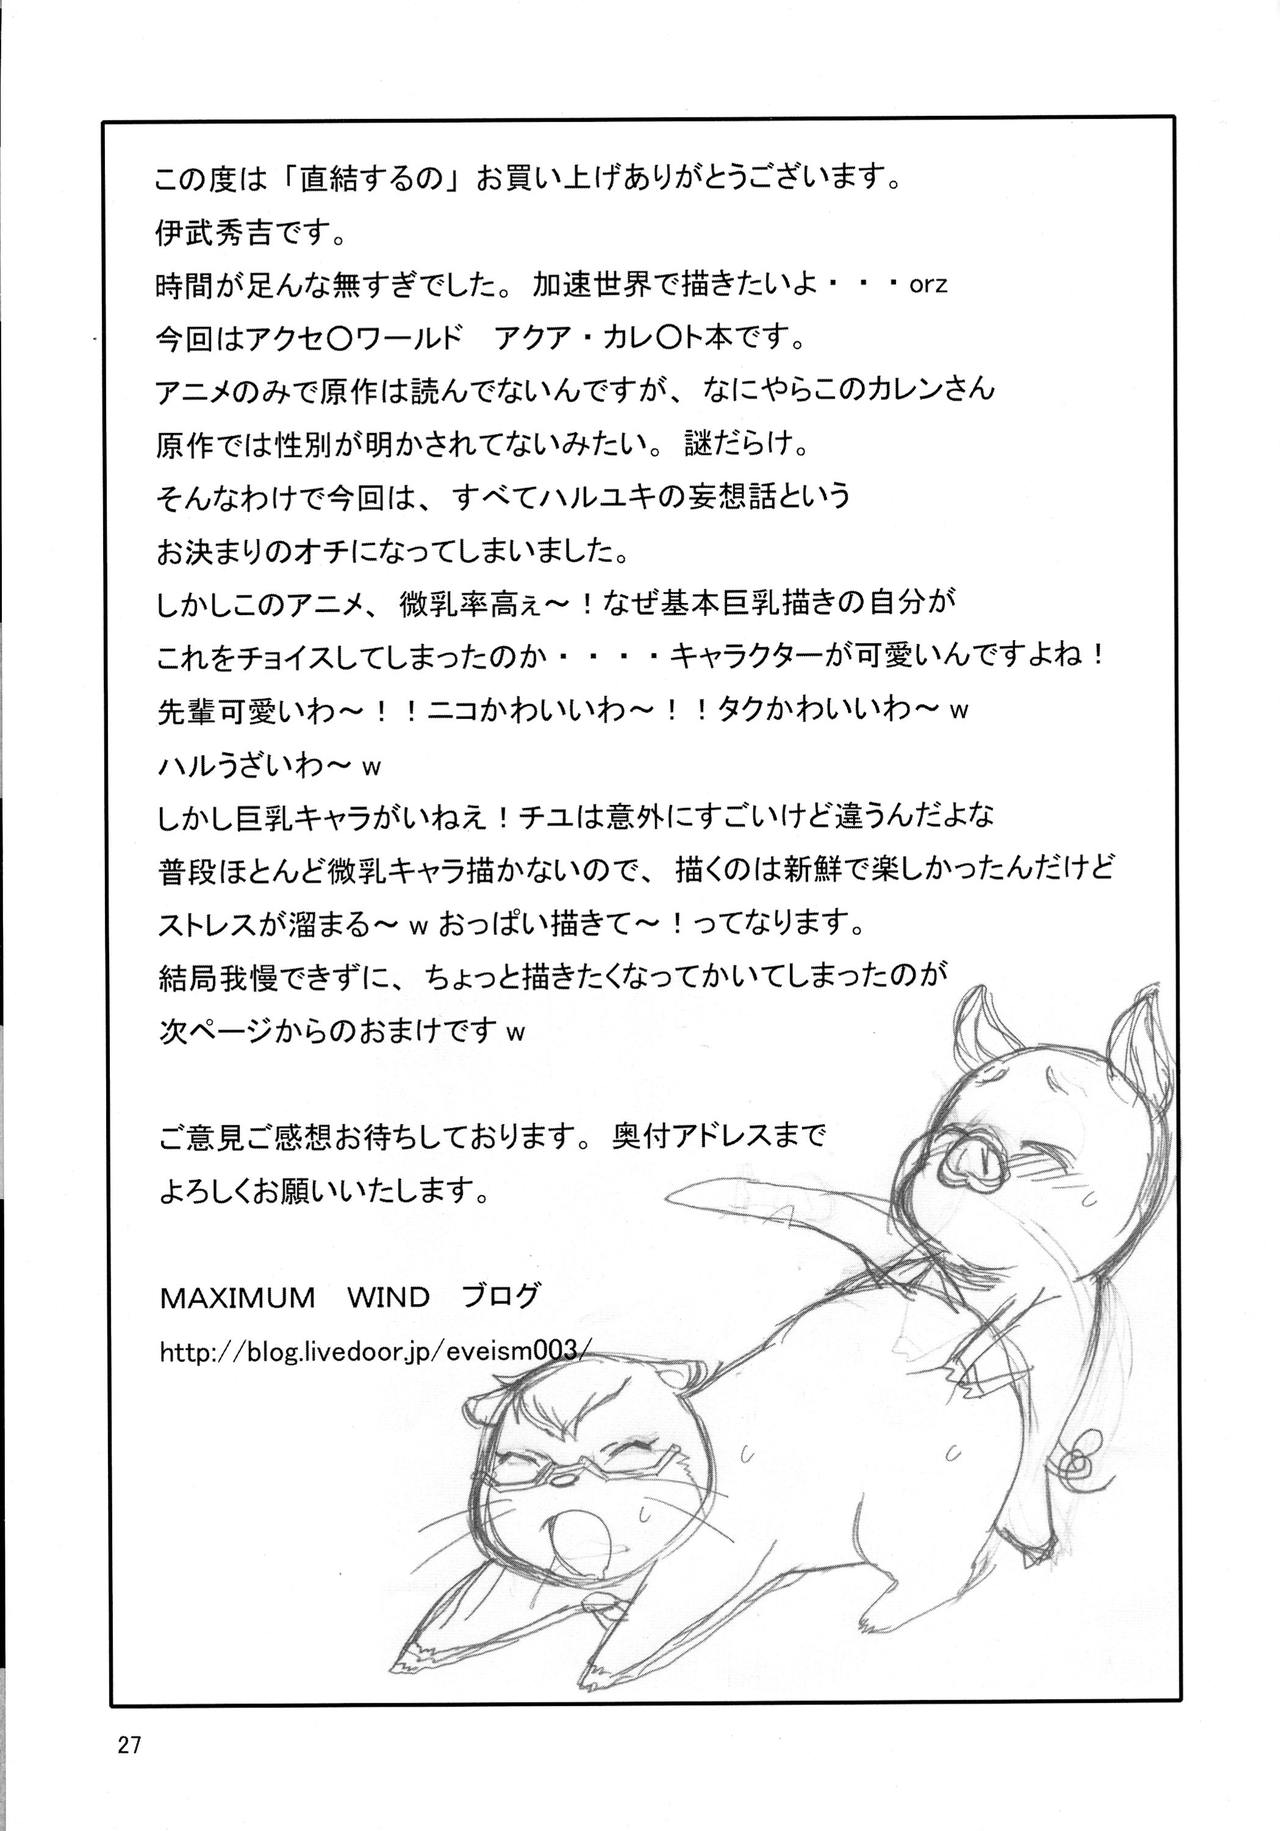 この度は「直結するの」お買い上げありがとうございます。
伊武秀吉です。
時間が足んな無すぎでした。加速世界で描きたいよ・・・orz
今回はアクセ〇ワールド　アクア・カレ〇ト本です。
アニメのみで原作は読んでないんですが、なにやらこのカレンさん
原作では性別が明かされてないみたい。謎だらけ。
そんなわけで今回は、すべてハルユキの妄想話という
お決まりのオチになってしまいました。
しかしこのアニメ、微乳率高ぇ～！なぜ基本巨乳描きの自分が
これをチョイスしてしまったのか・・・・キャラクターが可愛いんですよね！
先輩可愛いわ～！！ニコかわいいわ～！！タクかわいいわ～w
ハルうざいわ～w
しかし巨乳キャラがいねえ！チユは意外にすごいけど違うんだよな
普段ほとんど微乳キャラ描かないので、描くのは新鮮で楽しかったんだけど
ストレスが溜まる～wおっぱい描きて～！ってなります。
結局我慢できずに、ちょっと描きたくなってかいてしまったのが
次ページからのおまけですw
ご意見ご感想お待ちしております。奥付アドレスまで
よろしくお願いいたします。
MAXIMUM　WIND　ブログ
http://blog.livedoor.jp/eveism003/
27